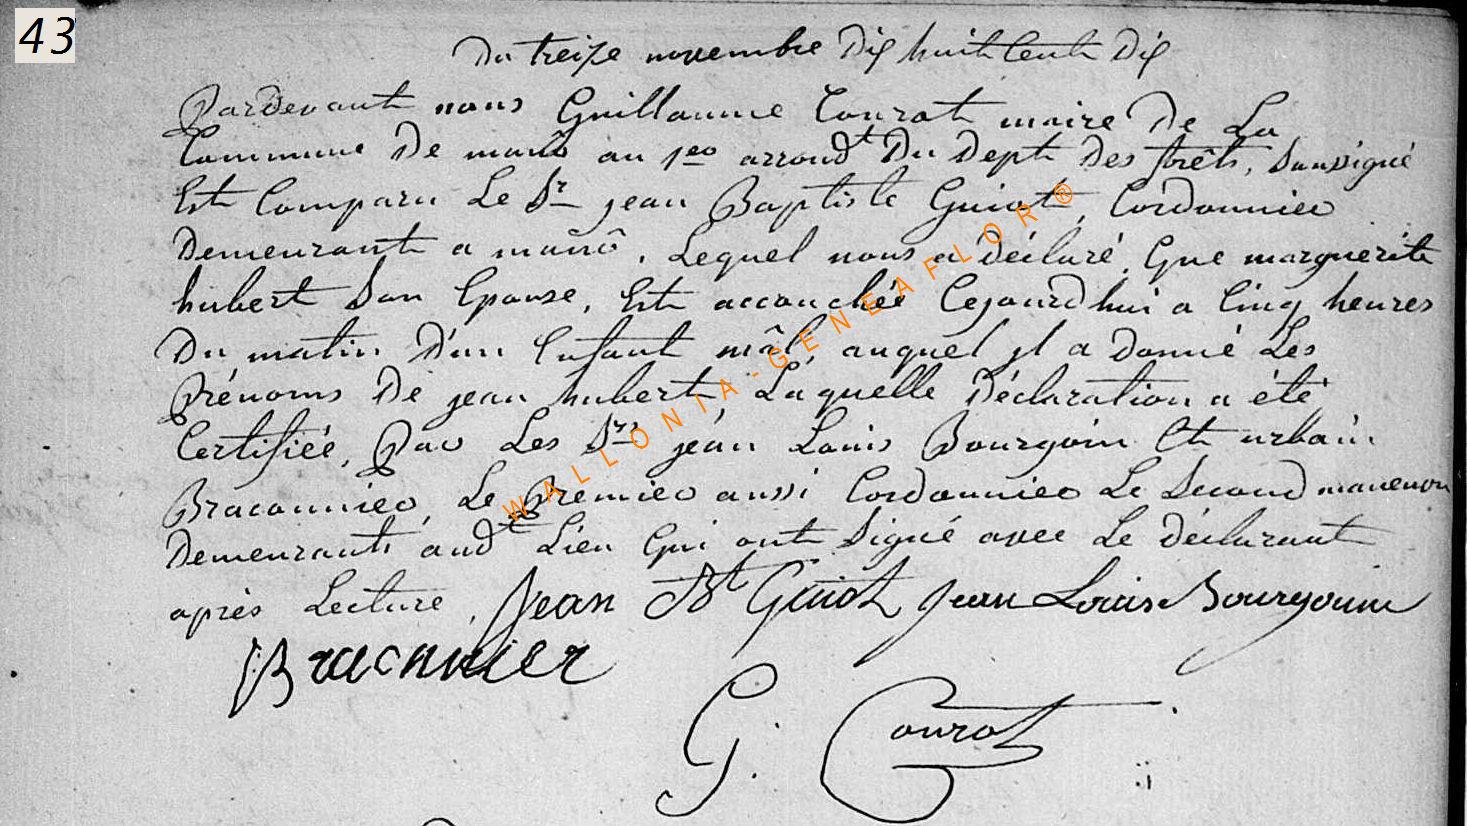 43
Du treize novembre Dix huit Cent Dix
Pardevant nous Guillaume Conrot maire De La
Commune De manô au 1er arrondt Du Dept Des forêts, Soussigné
Est Comparu Le Sr jean Baptiste Guiot, Cordonnier
Demeurant a manô, Lequel nous a déclaré, Que marguerite
hubert Son Epouse, Est accouchée Cejourdhui a Cinq heures
Du matin D'un Enfant mâl, auquel il a Donné Les
Prénoms De jean hubert, Laquelle Déclaration a été
Certifiée, Par Les Srs jean Louis Bourgoin Et urbain
Braconnier, Le Premier aussi Cordonnier Le Second
Demeurants audt Lieu Qui ont Signé avec Le Déclarant
après Lecture, Jean Bt Guiot Jean Louis Bourgouin
Braconnier
G. Conrot
WALLONIA-GENEAFLOR®